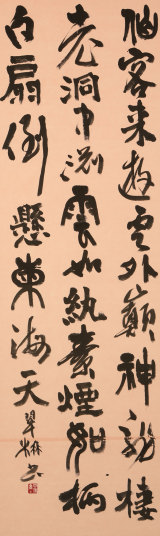 仙客来遊雲外巓神龍棲
老洞中淵雲如紈素煙如柄
白扇倒懸東海天